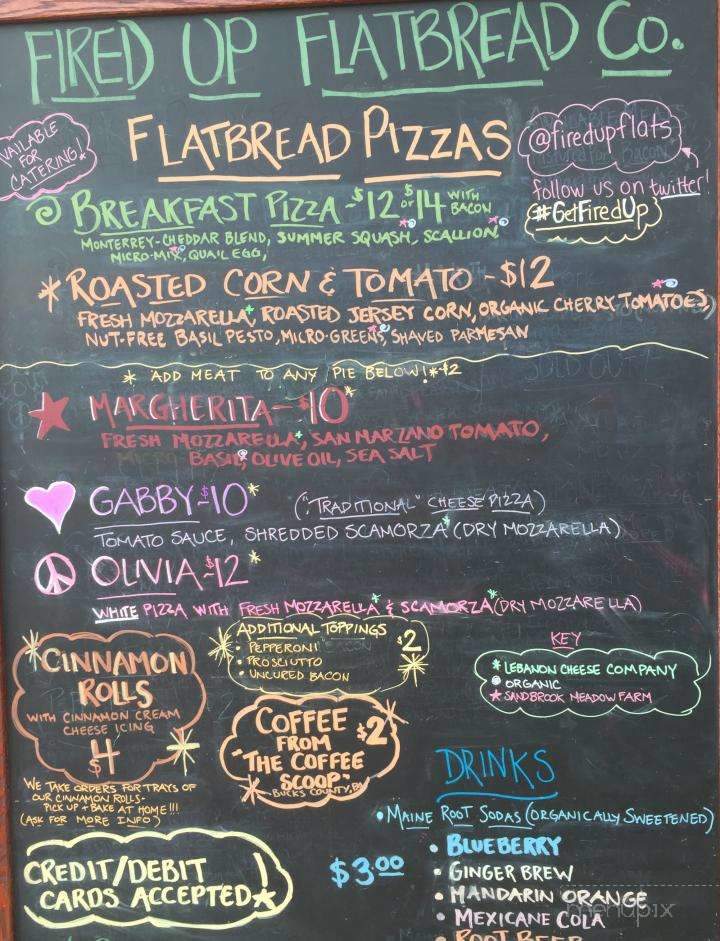 FIRED UP FLATBREAD Co.
FLATBREAD PIZZAS
VAILABLE
FOR
CATERING!
@firedupflats
follow us on twitter!
#GetFiredUp
BREAKFAST PIZZA - $12 or $14 WITH BACON
MONTERREY-CHEDDAR BLEND, SUMMER SQUASH, SCALLION
MICRO-MIX, QUAIL EGG,
* ROASTED CORN & TOMATO - $12
FRESH MOZZARELLA, ROASTED JERSEY CORN, ORGANIC CHERRY TOMATOES,
NUT-FREE BASIL PESTO, MICRO-GREENS, SHAVED PARMESAN
* ADD MEAT TO ANY PIE BELOW! * $2
MARGHERITA - $10*
FRESH MOZZARELLA, SAN MARZANO TOMATO,
MICRO BASIL, OLIVE OIL, SEA SALT
GABBY - $10* ("TRADITIONAL" CHEESE PIZZA)
TOMATO SAUCE, SHREDDED SCAMORZA* (DRY MOZZARELLA)
OLIVIA - $12*
WHITE PIZZA WITH FRESH MOZZARELLA* & SCAMORZA* (DRY MOZZARELLA)
ADDITIONAL TOPPINGS
• PEPPERONI
• PROSCIUTTO
• UNCURED BACON
$2
KEY
* LEBANON CHEESE COMPANY
ORGANIC
★ SANDBROOK MEADOW FARM
CINNAMON
ROLLS
WITH CINNAMON CREAM
CHEESE ICING
$4
WE TAKE ORDERS FOR TRAYS OF
OUR CINNAMON ROLLS -
PICK UP + BAKE AT HOME!!!
(ASK FOR MORE INFO)
COFFEE $2
FROM
"THE COFFEE
SCOOP"
BUCKS COUNTY, PA
CREDIT/DEBIT
CARDS ACCEPTED!
DRINKS
• MAINE ROOT SODAS (ORGANICALLY SWEETENED)
$3.00
• BLUEBERRY
• GINGER BREW
• MANDARIN ORANGE
• MEXICANE COLA
ROOT BEER
menupix